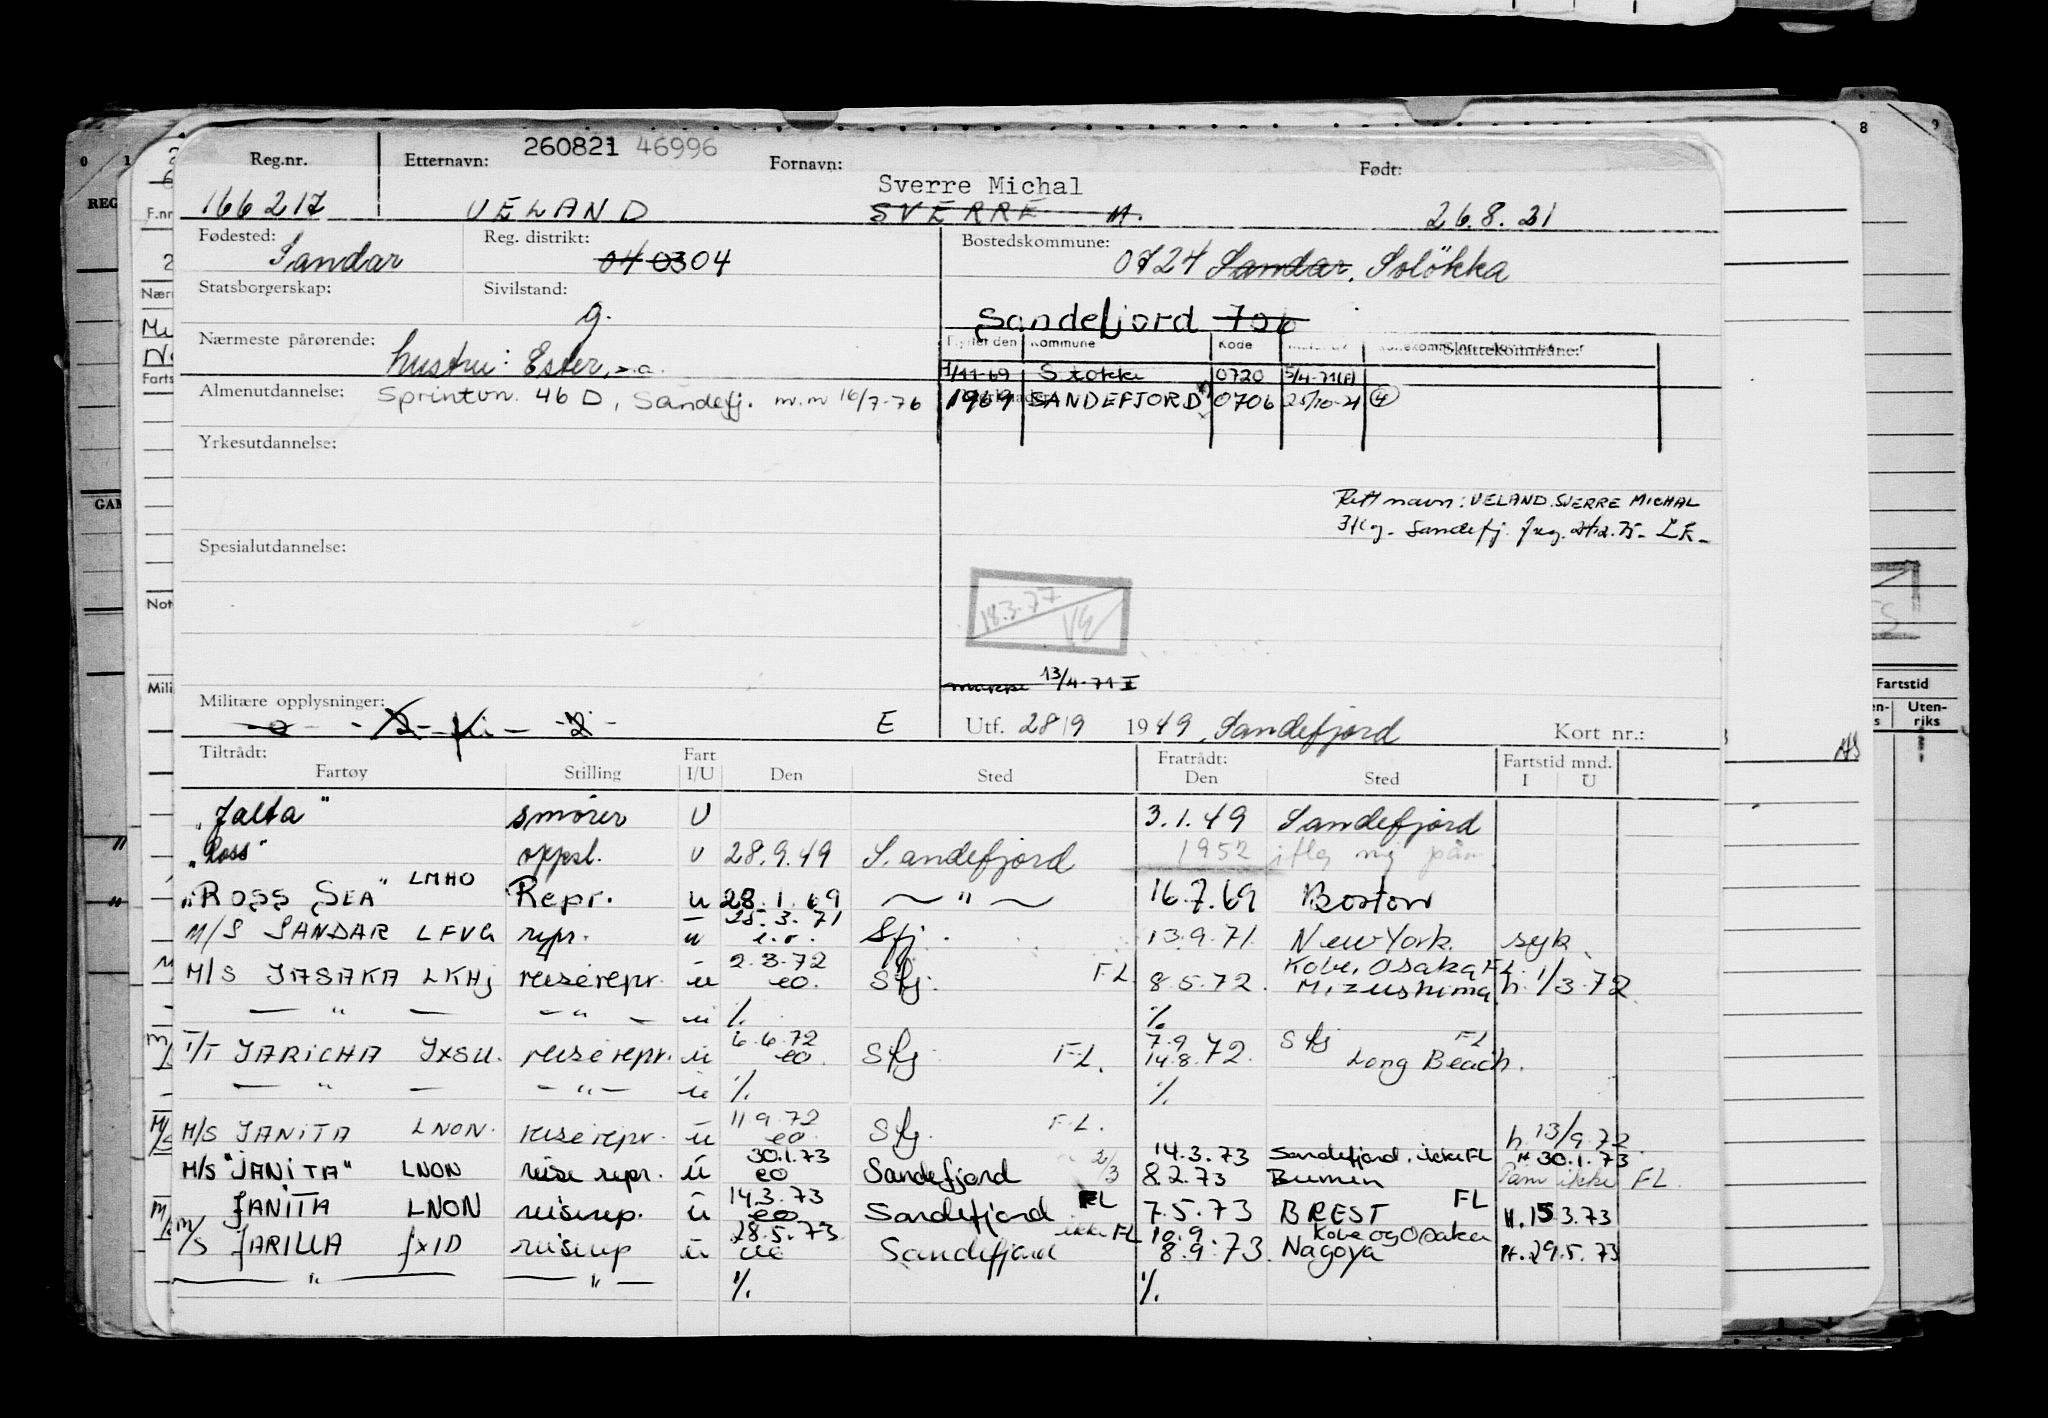 Reg.nr. Etternavn: 260821 46996 Fornavn: Født:
Sverre Michal
166217 VELAND SVERRE M. 26.8.21
Fødested: Reg. distrikt: Bostedskommune:
Sandar 04 03 04 0724 Sandar, Soløkka
Statsborgerskap: Sivilstand:
g. Sandefjord 706
Nærmeste pårørende: Kommune Kode Skattekommune:
hustru: Ester, s.a. 1/11-69 Stokke 0720 5/4-71(F)
Almenutdannelse: Sprintvn. 46 D, Sandefj. m.m 16/7-76 1969 SANDEFJORD 0706 25/10-71 (4)
Yrkesutdannelse:
Rett navn: VELAND. SVERRE MICHAL
Spesialutdannelse:
18.3.77
13/4-71
Militære opplysninger:
E Utf. 28/9 1949, Sandefjord Kort nr.:
Tiltrådt: Fart Fratrådt: Fartstid mnd.
Fartøy Stilling I/U Den Sted Den Sted I U
"Jalta" smører U 3.1.49 Sandefjord
"Ross" oppsl. U 28.9.49 Sandefjord 1952
"ROSS SEA" LMHO Repr. u 28.1.69 — " — 16.7.69 Boston
M/S SANDAR LFVG repr. u 25.3.71 e.o. Sfj. 13.9.71 New York. syk
M/S JASAKA LKHJ reiserepr. u 2.3.72 eo. Sfj. FL 8.5.72. Kobe, Osaka FL. Mizushima h. 1/3.72
— " — — " — u %. %.
T/T JARICHA JXSU. reiserepr. u 6.6.72 eo. Sfj. F.L. 7.9 14.8.72. Sfj FL Long Beach.
— " — — " — u %. %.
M/S JANITA LNON. reiserepr. u 11.9.72 eo. Sfj. F.L. h. 13/9.72
M/S "JANITA" LNON reise repr. u 30.1.73 eo Sandefjord 14.3.73 8.2.73 Sandefjord, ikke FL Bremen 30.1.73 Påm ikke FL.
JANITA LNON reiserep. u 14.3.73 eo Sandefjord FL 7.5.73 BREST FL H.15.3.73
M/S JARILLA JXID reiserep u 28.5.73 Sandefjord ikke FL 10.9. 8.9.73. Kobe og Osaka Nagoya H.29.5.73
— " — — " — %. %.